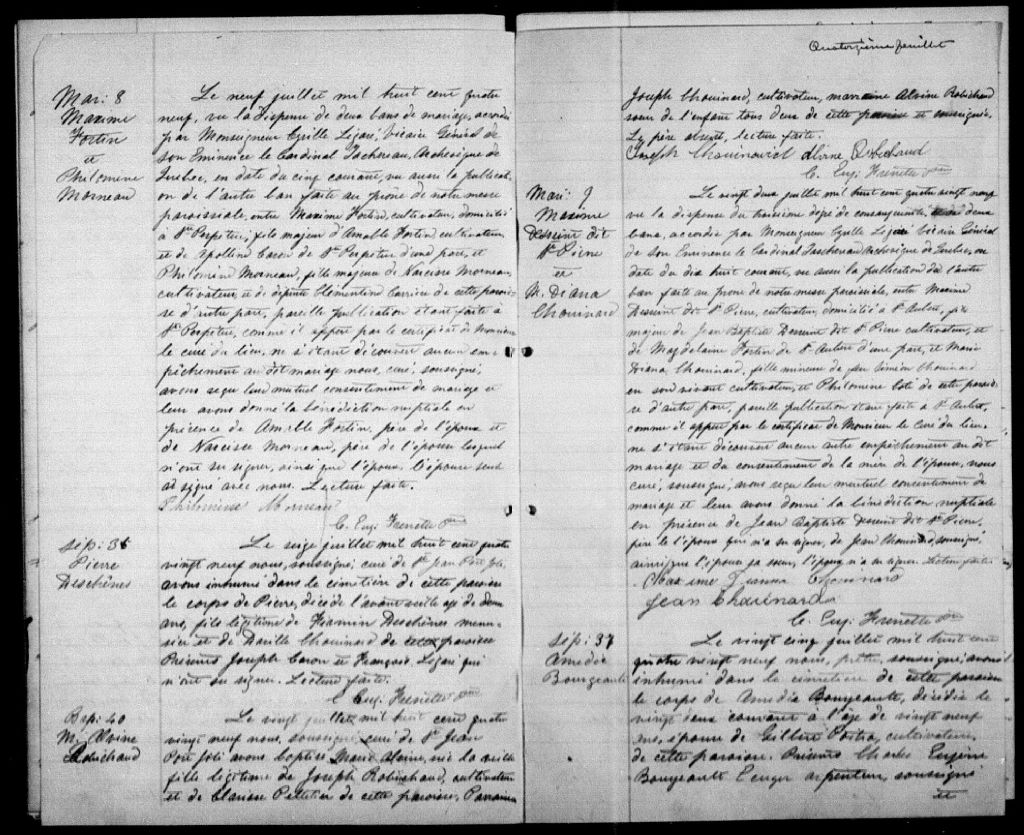 Mar: 8
Maxime
Fortin
et
Philomène
Morneau
Le neuf juillet mil huit cent quatre
neuf, vu la dispense de deux bans de mariage, accordée
par Monseigneur Cyrille Légaré, Vicaire Général de
son Eminence le Cardinal Taschereau, Archevêque de
Québec, en date du cinq courant, vu aussi la publicat-
ion de l'autre ban faite au prône de notre messe
paroissiale, entre Maxime Fortin, cultivateur, domicilié
à Ste Perpétue, fils majeur d'Amable Fortin cultivateur
et de Apolline Caron de Ste Perpétue d'une part, et
Philomène Morneau, fille majeure de Narcisse Morneau,
cultivateur, et de défunte Clémentine Carrière de cette parois-
se d'autre part, pareille publication étant faite à
Ste Perpétue, comme il appert par le certificat de Monsieur
le curé du lieu, ne s'étant découvert aucun em-
pêchement au dit mariage nous, curé, soussigné,
avons reçu leur mutuel consentement de mariage et
leur avons donné la bénédiction nuptiale en
présence de Amable Fortin, père de l'époux et
de Narcisse Morneau, père de l'épouse lesquels
n'ont su signer, ainsi que l'époux. L'épouse seule
a signé avec nous. Lecture faite.
Philomène Morneau
C. Eug. Frenette Ptre
Sép: 36
Pierre
Deschênes
Le seize juillet mil huit cent quatre
vingt neuf nous, soussigné, curé de St Jean Port Joli
avons inhumé dans le cimetière de cette paroisse
le corps de Pierre, décédé l'avant veille âgé de deux
ans, fils légitime de Firmin Deschênes menui-
sier et de Chouinard de cette paroisse
Présents Joseph Caron et François Légaré qui
n'ont su signer. Lecture faite.
C. Eug. Frenette Ptre
Bap: 40
M. Alvine
Robichaud
Le vingt juillet mil huit cent quatre
vingt neuf nous, soussigné, curé de St Jean
Port Joli avons baptisé Marie Alvine, née la veille
fille légitime de Joseph Robichaud, cultivateur
et de Clarisse Pelletier de cette paroisse, Parrain
Quatorzième feuillet
Joseph Chouinard, cultivateur, marraine Alvine Robichaud
soeur de l'enfant tous deux de cette paroisse et soussignés.
Le père absent, lecture faite.
Joseph Chouinard Alvine Robichaud
C. Eug. Frenette Ptre
Mari: 9
Maxime
Dessaint dit
St Pierre
et
M. Diana
Chouinard
Le vingt deux juillet mil huit cent quatre vingt neuf
vu la dispense du troisième degré de consanguinité deux
bans, accordée par Monseigneur Cyrille Légaré Vicaire Général
de son Eminence le Cardinal Taschereau Archevêque de Québec, en
date du dix huit courant, vu aussi la publication de l'autre
ban faite au prône de notre messe paroissiale, entre Maxime
Dessaint dit St Pierre, cultivateur, domicilié à St Aubert, fils
majeur de Jean Baptiste Dessaint dit St Pierre cultivateur, et
de Magdelaine Fortin de St Aubert d'une part, et Marie
Diana Chouinard, fille mineure de feu Siméon Chouinard
en son vivant cultivateur, et Philomène Coté de cette parois-
se d'autre part, pareille publication étant faite à St Aubert,
comme il appert par le certificat de Monsieur le Curé du lieu,
ne s'étant découvert aucun autre empêchement au dit
mariage et du consentement de la mère de l'épouse, nous
curé, soussigné, avons reçu leur mutuel consentement de
mariage et leur avons donné la bénédiction nuptiale
en présence de Jean Baptiste Dessaint dit St Pierre,
père de l'époux qui n'a su signer, de Jean Chouinard, soussigné,
ainsi que l'épouse l'époux n'a su signer. Lecture faite
Chouinard
Jean Chouinard
C. Eug. Frenette Ptre
Sép: 37
Amédée
Bourgeault
Le vingt cinq juillet mil huit cent
quatre vingt neuf nous, prêtre, soussigné, avons
inhumé dans le cimetière de cette paroisse
le corps de Amédée Bourgeault, décédée le
vingt deux courant à l'âge de vingt neuf
ans, épouse de Gilbert Fortin, cultivateur,
de cette paroisse. Présents Charles Eugène
Bourgeault Ecuyer arpenteur, soussigné
et